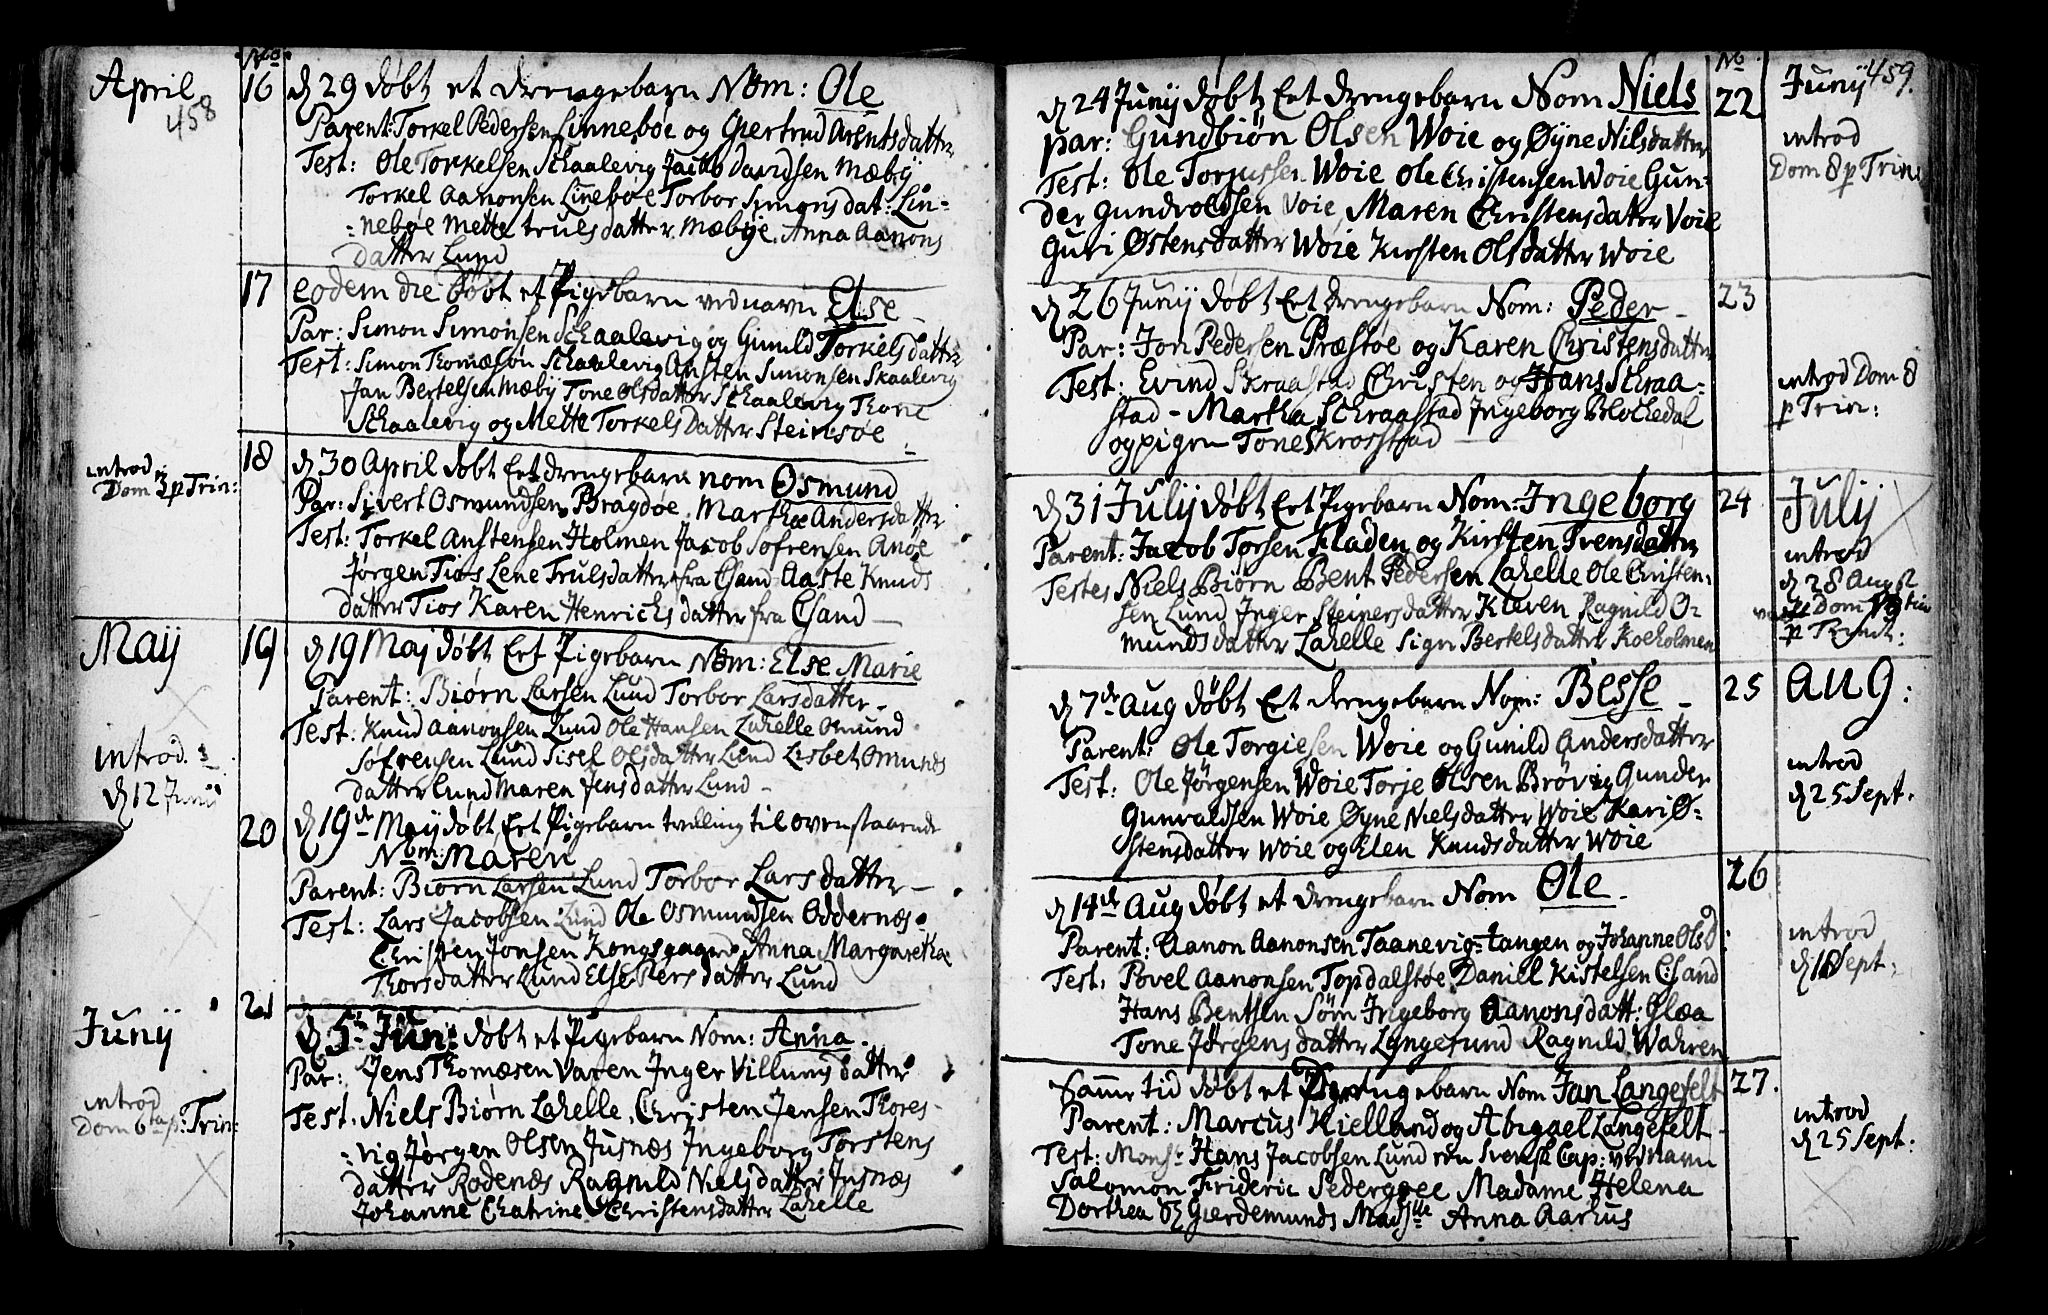 April
458
No
16 d 29 døbt et drengebarn Nom: Ole
Parent: Torkel Pedersen Linneboe og Giertrud Arentsdatter
Test: Ole Torkelsen Schaalevig Jacob Davidsen Mæbÿ
Torkel Aanonsen Linneboe Torbor Simonsdat: Lin-
:nebøe Mette trulsdatter Mæbÿe Anna Aanons
datter Lund
17 eodem die døbt et Pigebarn ved navn Else
Par: Simon Simonsen Schaalevig og Gunild Torkelsdatter
Test: Simon Thomæson Schaalevig Ansten Simonsen Skaalevig
Jan Bertelsen Mæbÿ Tone Olsdatter Schaalevig Thone
Schaalevig og Mette Torkelsdatter Steinsøe
introd
Dom 3 p Trin:
18 d 30 April døbt Eet drengebarn nom Osmund
Par: Sivert Osmundsen Bragdøe. Marthe Andersdatter
Test: Torkel Anstensen Holmen Jacob Sofrensen Anøe
Jørgen Tios Lene Trulsdatter fra Csand Aaste Knuds
datter Tios Karen Henrichsdatter fra Csand
Maÿ
19 d 19 Maj døbt Eet Pigebarn Nom: Else Marie
Parent: Biørn Larsen Lund Torbor Larsdatter
introd.
d 12 Junÿ
Test: Knud Aanonsen Lund Ole Hansen Lahelle Omund
Søfrensen Lund Sisel Olsdatter Lund Lisbet Omunds
datter Lund Maren Jensdatter Lund
20 d 19de Maÿ døbt Eet Pigebarn tvilling til ovenstaaende
Nom: Maren
Parent: Biørn Larsen Lund Torbor Larsdatter
Test: Lars Jacobsen Lund Ole Osmundsen Oddernæs
Christen Jonsen Kongsgaard Anna Margaretha
Thorsdatter Lund Else Persdatter Lund
Junÿ
21 d 5te Jun: døbt et Pigebarn Nom: Anna.
Par: Jens Thomæsen Varen Inger Villumsdatter
introd
Dom 6ta p: Trin:
Test. Niels Biørn Lahelle, Christen Jensen Thores-
:vig Jørgen Olsen Jusnæs Ingeborg Torstens
datter Rodenæs Ragnild Nielsdatter Jusnæs
Johanne Chatrine Christensdatter Lahelle
No
459.
Junÿ
d 24 Junÿ døbt Eet drengebarn Nom Niels 22
par: Gundbiøn Olsen Woie og Øyne Nilsdatter
Test: Ole Torjussen Woie Ole Christensen Woie Gun-
der Gundvoldsen Voie, Maren Christensdatter Voie
Guri Østensdatter Woie Kirsten Olsdatter Woie
introd
Dom 8 p Trin:
d 26 Junÿ døbt Eet drengebarn Nom: Peder 23
Par: Jon Pedersen Præstøe og Karen Christensdatter
Test: Evind Skraastad Christen og Hans Schraa-
stad - Martha Schraastad Ingeborg Blochedal
og pigen Tone Skrosstad
introd Dom 8
p Trin:
d 31 Julÿ døbt Eet Pigebarn Nom: Ingeborg 24
Parent: Jacob Torsen Fladen og Kirsten Trensdatter
Testes Niels Biørn Bent Pedersen Lahelle Ole Christen:
sen Lund Inger Steinersdatter Klaven Ragnild O-
mundsdatter Lahelle Sign Bertelsdatter Koeholmen
Julÿ
introd
d 28 Augst
Dom
p Trinit:
d 7de Aug døbt Eet drengebarn Nom: Besse 25
Parent: Ole Torgiesen Woie og Gunild Andersdatter
Test: Ole Jørgensen Woie Torje Olsen Brøvig Gunder
Gunvaldsen Woie Øyne Nielsdatter Woie Kari Ø-
stensdatter Woie og Elen Knudsdatter Woie
Aug:
introd
d 25 Sept.
d 14de Aug døbt et drengebarn Nom Ole 26
Parent: Aanon Aanonsen Taanevig-tangen og Johanne OlsD
Test: Povel Aanonsen Topdalstøe Daniel Kistelsen Csand
Hans Bentsen Søm Ingeborg Aanonsdatt: Glæa
Tone Jørgensdatter Langelund Ragnild Wahren
introd
d 18 Sept.
Samme tid døbt et Drengebarn Nom Jan Langefelt 27.
Parent: Marcus Kielland og Abiggel Langefelt
Test: Monsr Hans Jacobsen Lund een Svensk Cap: ved navn
Salomon Frideric Sedergree Madame Helena
Dorthea Giærdemunds Madslle Anna Aarhus
introd
d 25 Sept.